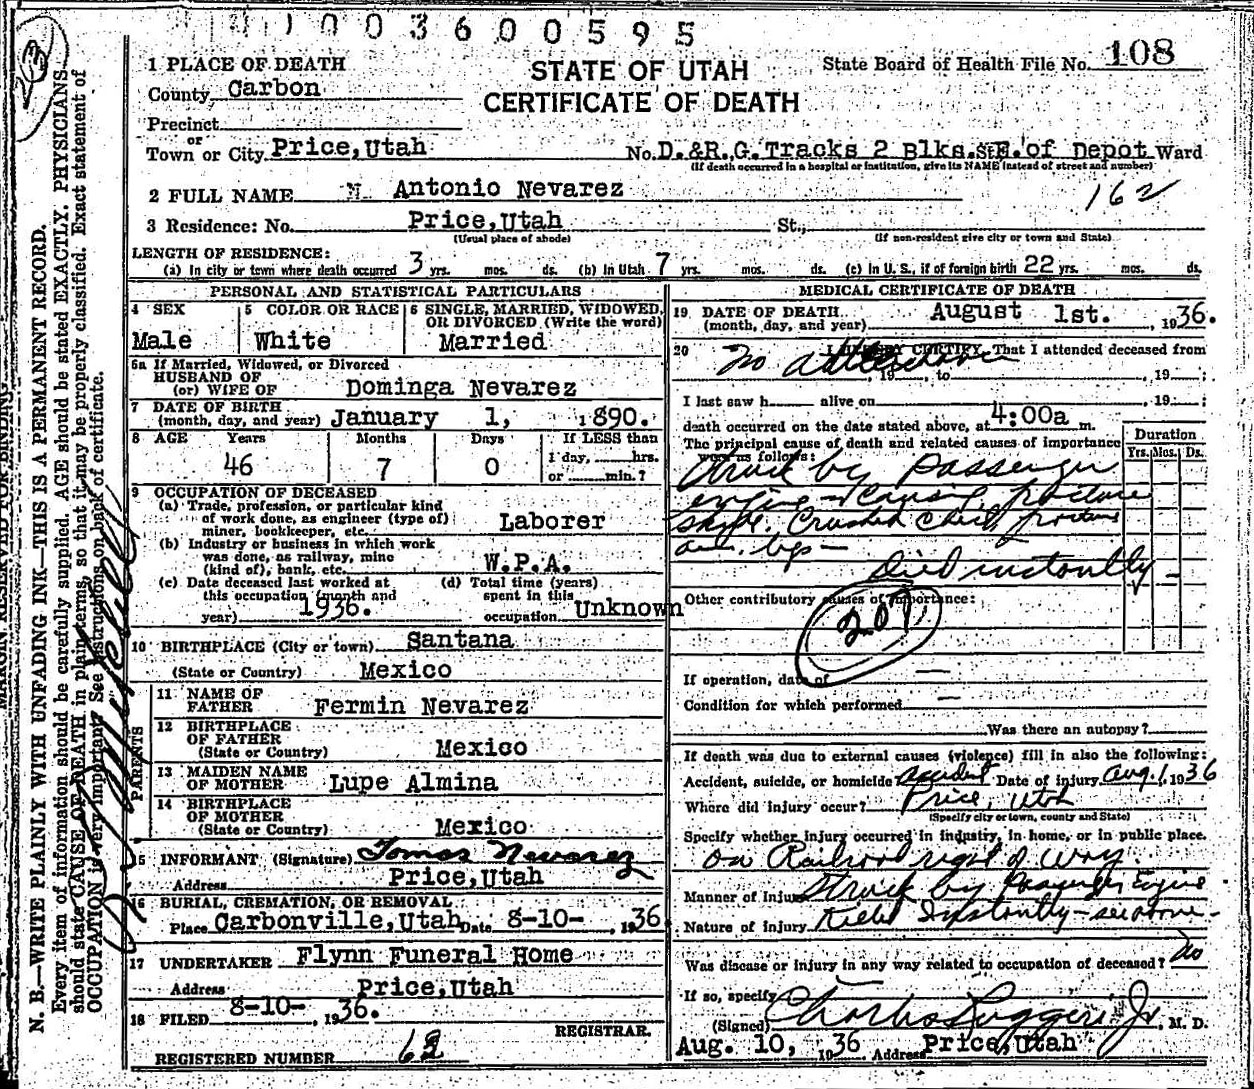 003600595
1 PLACE OF DEATH
STATE OF UTAH
State Board of Health File No. 108
County Carbon
CERTIFICATE OF DEATH
Precinct
or
Town or City Price, Utah No. D.&R.G. Tracks 2 Blks. St. E. of Depot Ward
(If death occurred in a hospital or institution, give its NAME instead of street and number)
2 FULL NAME M. Antonio Nevarez 162
3 Residence: No. Price, Utah St.,
(Usual place of abode) (If non-resident give city or town and State)
LENGTH OF RESIDENCE:
(a) In city or town where death occurred 3 yrs. mos. ds. (b) In Utah 7 yrs. mos. ds. (c) In U. S., if of foreign birth 22 yrs. mos. ds.
PERSONAL AND STATISTICAL PARTICULARS
4 SEX 5 COLOR OR RACE 6 SINGLE, MARRIED, WIDOWED, OR DIVORCED (Write the word)
Male White Married
5a If Married, Widowed, or Divorced
HUSBAND OF
(or) WIFE OF Dominga Nevarez
7 DATE OF BIRTH
(month, day, and year) January 1, 1890.
8 AGE Years Months Days If LESS than
46 7 0 1 day, hrs.
or min.?
9 OCCUPATION OF DECEASED
(a) Trade, profession, or particular kind
of work done, as engineer (type of)
miner, bookkeeper, etc. Laborer
(b) Industry or business in which work
was done, as railway, mine
(kind of), bank, etc. W.P.A.
(c) Date deceased last worked at (d) Total time (years)
this occupation (month and spent in this
year) 1936. occupation Unknown
10 BIRTHPLACE (City or town) Santana
(State or Country) Mexico
PARENTS
11 NAME OF
FATHER Fermin Nevarez
12 BIRTHPLACE
OF FATHER
(State or Country) Mexico
13 MAIDEN NAME
OF MOTHER Lupe Almina
14 BIRTHPLACE
OF MOTHER
(State or Country) Mexico
15 INFORMANT (Signature) Tomas Nevarez
Address Price, Utah
16 BURIAL, CREMATION, OR REMOVAL
Place Carbonville, Utah Date 8-10- , 1936
17 UNDERTAKER Flynn Funeral Home
Address Price, Utah
18 FILED 8-10- , 1936.
REGISTRAR.
REGISTERED NUMBER 62
MEDICAL CERTIFICATE OF DEATH
19 DATE OF DEATH August 1st. , 1936.
(month, day, and year)
20 I HEREBY CERTIFY, That I attended deceased from
No attendance , 19 , to , 19 ;
I last saw h alive on , 19 ;
death occurred on the date stated above, at 4:00a m.
The principal cause of death and related causes of importance
were as follows: Duration
Yrs. Mos. Ds.
Struck by passenger
engine - causing fracture
skull. Crushed chest, fracture
arm. legs -
Died instantly -
Other contributory causes of importance:
207
If operation, date of
Condition for which performed
Was there an autopsy?
If death was due to external causes (violence) fill in also the following:
Accident, suicide, or homicide Accident Date of injury Aug. 1, 1936
Where did injury occur? Price, Utah
(Specify city or town, county and State)
Specify whether injury occurred in industry, in home, or in public place.
On Railroad right of way.
Manner of injury Struck by Passenger Engine
Nature of injury Killed Instantly - see above -
Was disease or injury in any way related to occupation of deceased? No
If so, specify
(Signed) Charles Ruggeri Jr. , M. D.
Aug. 10, 1936 Address Price, Utah
MARGIN RESERVED FOR BINDING
N. B.—WRITE PLAINLY WITH UNFADING INK—THIS IS A PERMANENT RECORD.
Every item of information should be carefully supplied. AGE should be stated EXACTLY. PHYSICIANS
should state CAUSE OF DEATH in plain terms, so that it may be properly classified. Exact statement of
OCCUPATION is very important. See instructions on back of certificate.